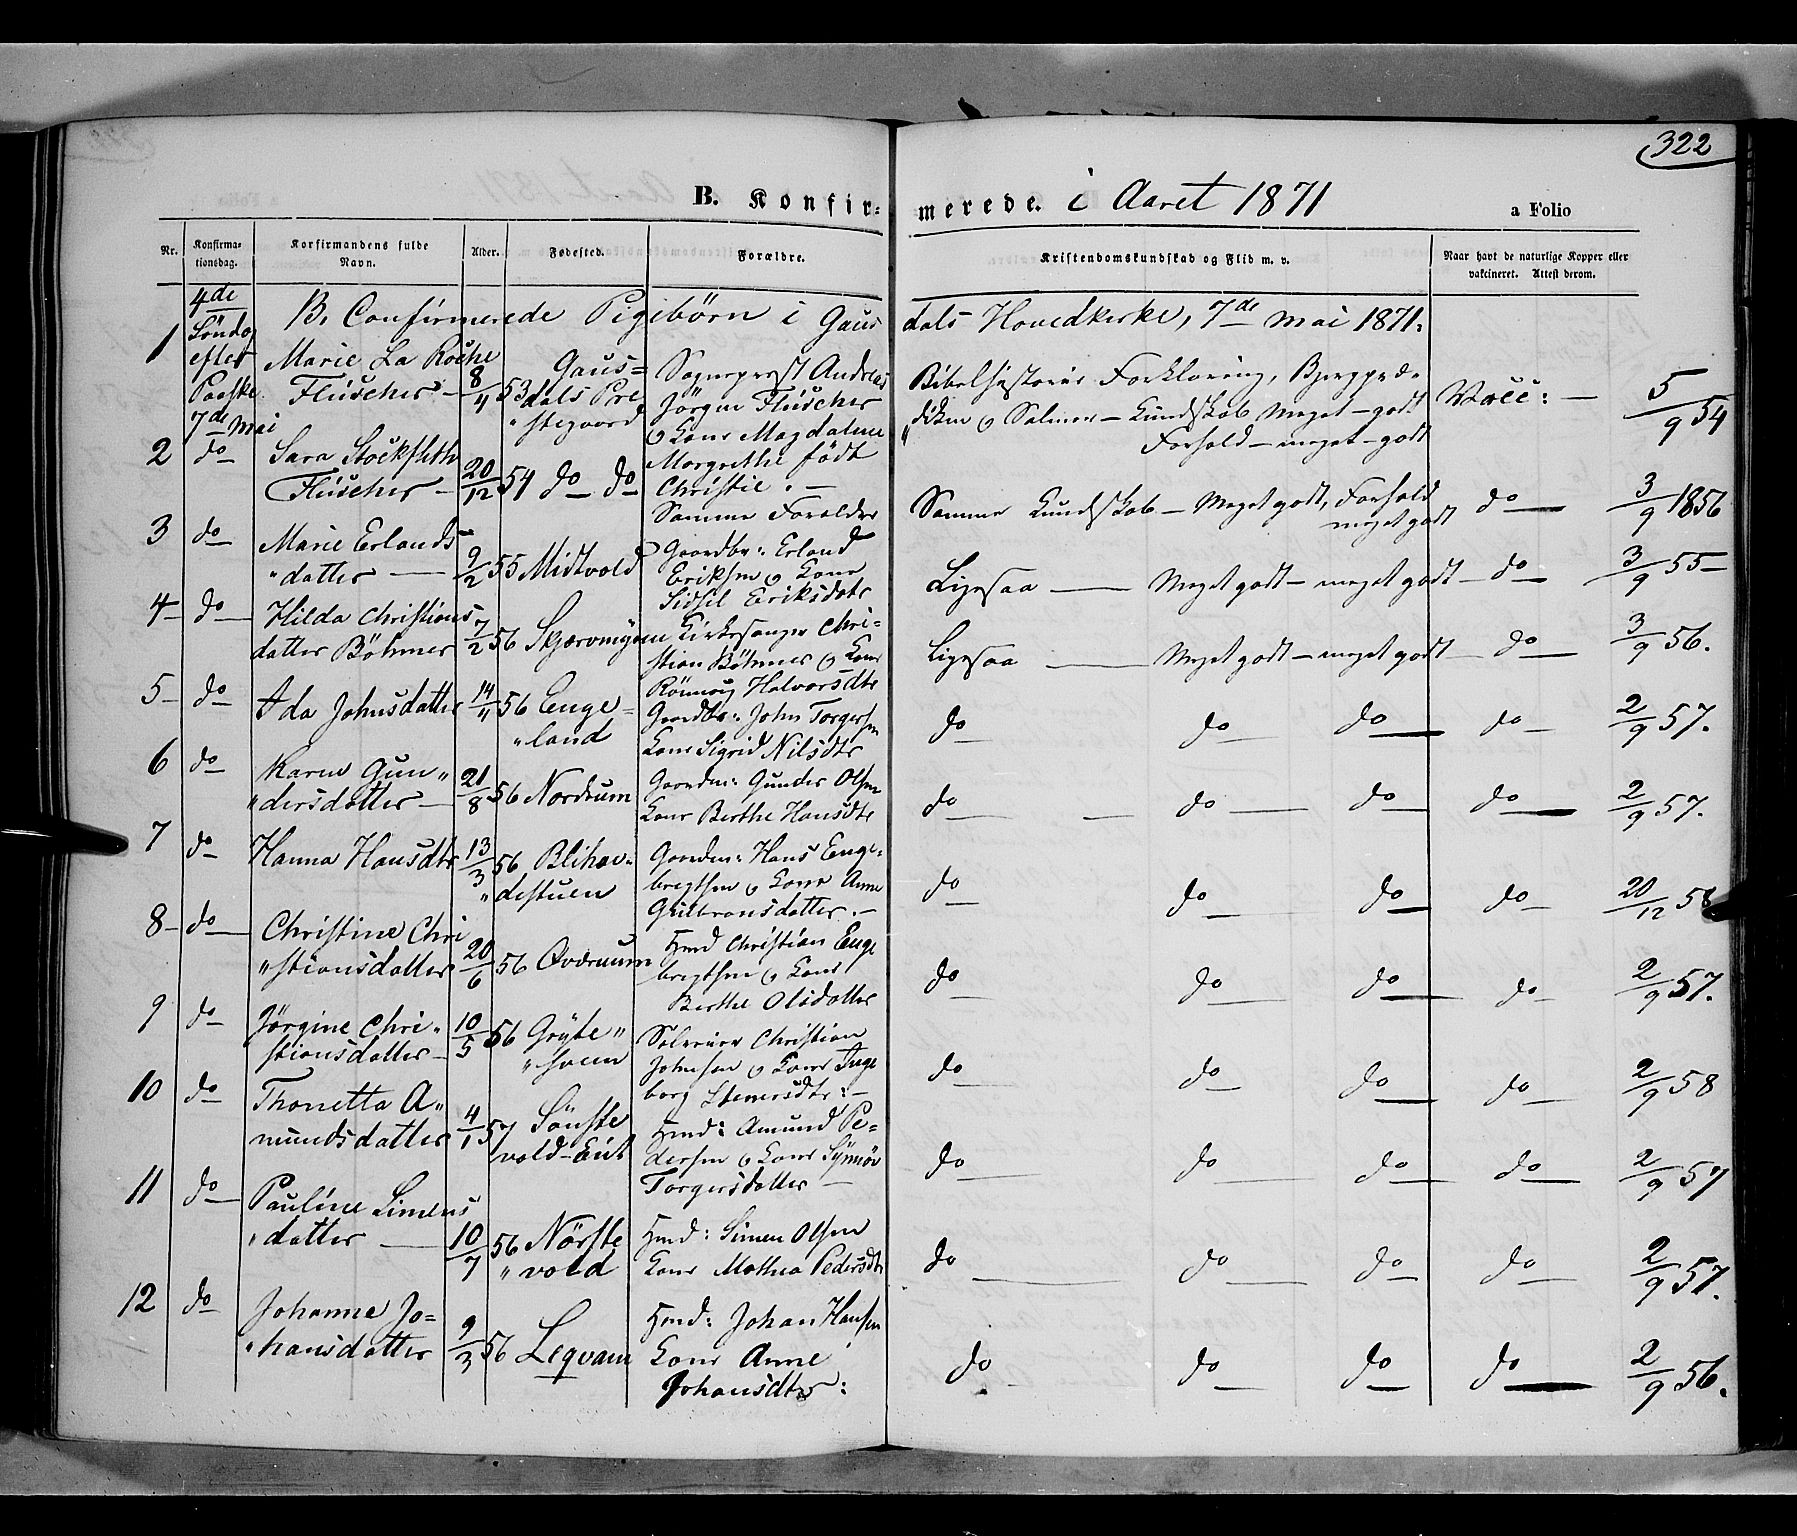 322
B. Konfir- merede. i Aaret 1871 a Folio
Nr. Konfirma- tionsdag. Korfirmandens fulde Navn. Alder. Fødested. Forældre. Kristendomskundskab og Flid m. v. Naar havt de naturlige Kopper eller vakcineret. Attest derom.
B. Confirmerede Pigebörn i Gaus dals Hovedkirke, 7de mai 1871.
1 4de Söndag efter Paaske 7de Mai
Marie La Roche Fleischer 8/4 53 Gaus= dals Pre stegaard
Sogneprest Andreas
Jörgen Fleischer
o Kone Magdalene
Margrethe födt
Christie. —
Bibelhistorie Forklaring, Bjergpræ-
diken o Salmer — Kundskab Meget — godt
Forhold — meget — godt
Vacc: — 5/9 54
2 do Sara Stockfleth
Fleischer — 20/12 54 do do
Samme Foreldre
Samme Kundskab — Meget godt, Forhold
meget godt
do 3/9 1856
3 do Marie Erlands-
datter — 9/2 55 Midtvold
Gaardbr: Erland
Eriksen o Kone
Sidsel Eriksdatr
Ligesaa — Meget godt — meget godt — do 3/9 55 —
4 — do Hilda Christians
datter Böhmer 7/2 56 Skjærvmyren
Kirkesanger Chri=
stian Böhmer o Kone
Rönnoug Halvorsdtr
Ligesaa — Meget godt — meget godt — do 3/9 56.
5 — do Ada Johnsdatter 14/11 56 Enge=
land
Gaardbr: John Torgersen
Kone Sigrid Nilsdtr
do do do do 2/9 57.
6 do Karen Gun
dersdatter — 21/8 56 Nordrum
Gaardm: Gunder Olsen
Kone Berthe Hansdtr
do do do do 2/9 57.
7 do Hanna Hansdtr 13/3 56 Blihav-
destuen
Gaardm: Hans Enge-
bregtsen o Kone Anne
Gulbransdatter. —
do do do do 20/12 58
8 — do Christine Chri
stiansdatter 20/6 56 Qværuum
Hmd Christian Enge
bregtsen o Kone
Berthe Olsdatter
do do do do 2/9 57.
9 do Jörgine Chri-
stiansdatter — 10/5 56 Gryte
sveen
Selveier Christian
Johnsen o Kone Inge
borg Stenersdtr: —
do do do do 2/9 58
10 do Thonetta A-
mundsdatter 4/1 57 Sönste
vold-Eiet
Hmd: Amund Pe=
dersen o Kone Synnöv
Torgersdatter —
do do do do 2/9 57
11 do Pauline Simens
datter — 10/7 56 Nörste
vold
Hmd: Simen Olsen
Kone Mathea Pedersdtr
do do do do 2/9 57.
12 do Johanne Jo=
hansdatter 9/3 56 Leqvam
Hmd: Johan Hansen
Kone Anne
Johansdtr:
do do do do 2/9 56.